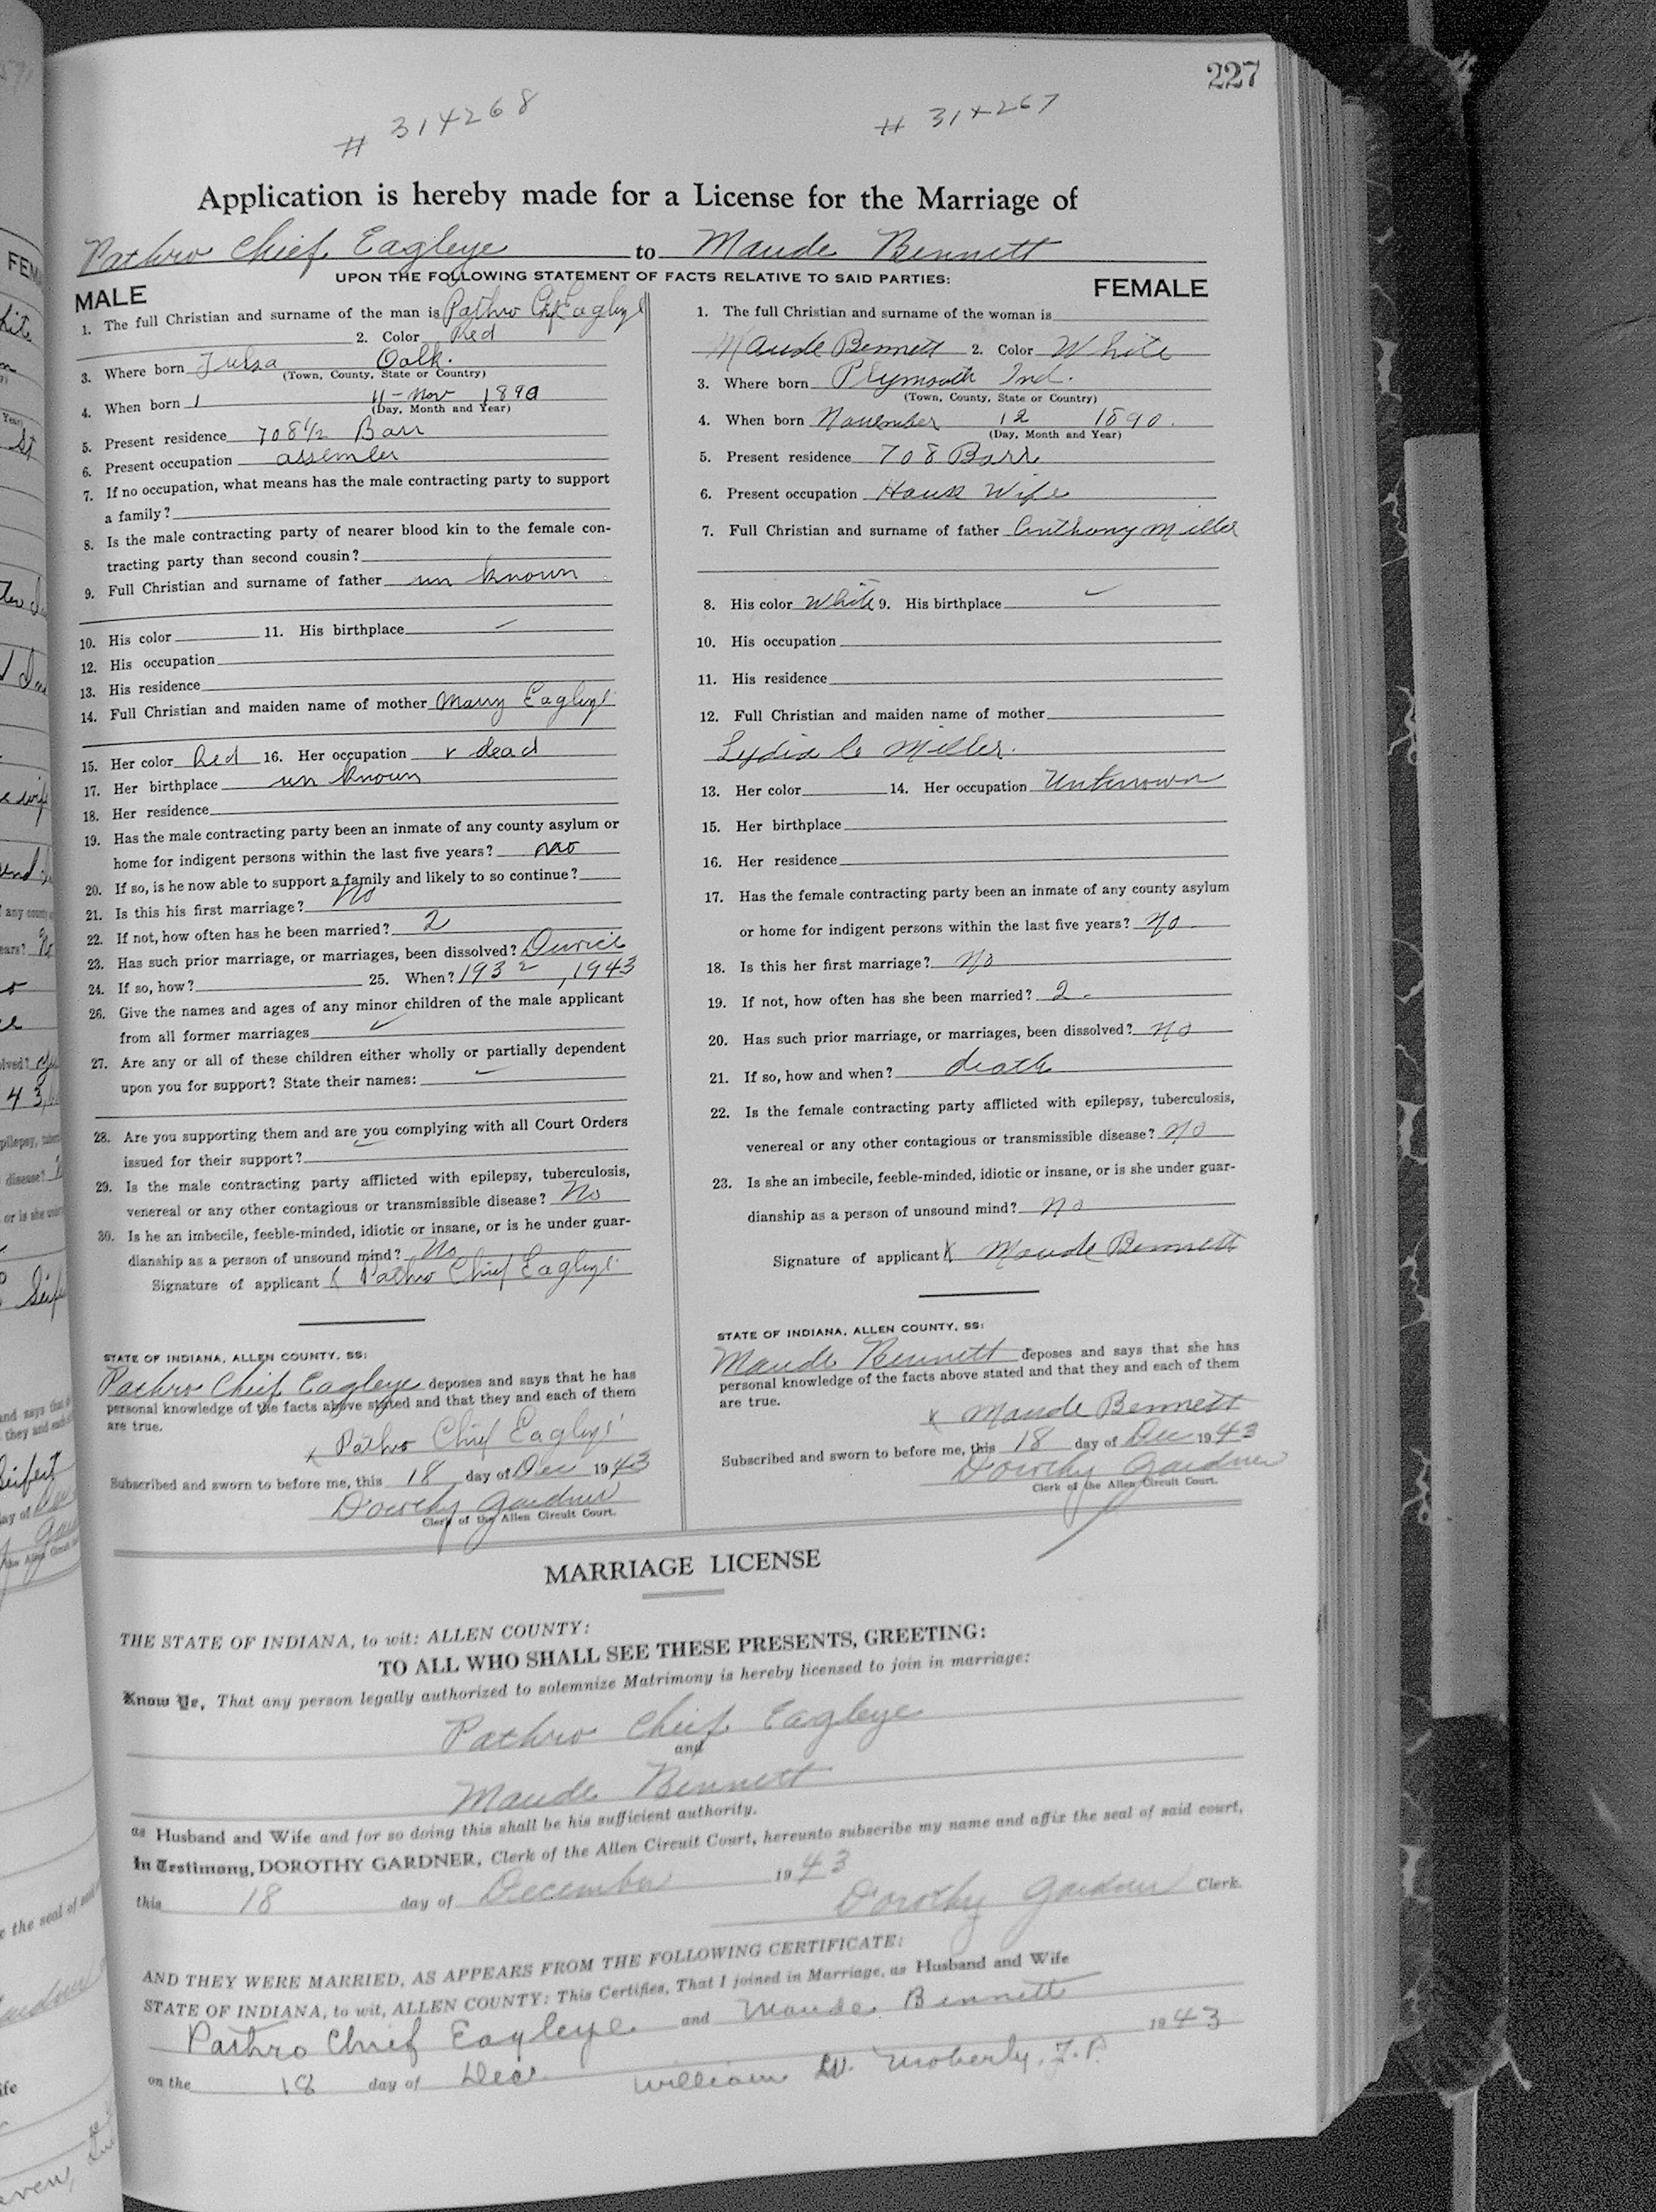 227
# 314268 # 314267
Application is hereby made for a License for the Marriage of
Pathro Chief Eagleye to Maude Bennett
UPON THE FOLLOWING STATEMENT OF FACTS RELATIVE TO SAID PARTIES:
MALE
1. The full Christian and surname of the man is Pathro Chf Eagleye
2. Color Red
3. Where born Tulsa Oalk.
(Town, County, State or Country)
4. When born 11 - Nov 1890
(Day, Month and Year)
5. Present residence 708 1/2 Barr
6. Present occupation assemler
7. If no occupation, what means has the male contracting party to support
a family?
8. Is the male contracting party of nearer blood kin to the female con-
tracting party than second cousin?
9. Full Christian and surname of father un known
10. His color 11. His birthplace
12. His occupation
13. His residence
14. Full Christian and maiden name of mother Marry Eagleye
15. Her color Red 16. Her occupation dead
17. Her birthplace un known
18. Her residence
19. Has the male contracting party been an inmate of any county asylum or
home for indigent persons within the last five years? no
20. If so, is he now able to support a family and likely to so continue?
21. Is this his first marriage? No
22. If not, how often has he been married? 2
23. Has such prior marriage, or marriages, been dissolved?
24. If so, how? 25. When? 1932, 1943
26. Give the names and ages of any minor children of the male applicant
from all former marriages
27. Are any or all of these children either wholly or partially dependent
upon you for support? State their names:
28. Are you supporting them and are you complying with all Court Orders
issued for their support?
29. Is the male contracting party afflicted with epilepsy, tuberculosis,
venereal or any other contagious or transmissible disease? No
30. Is he an imbecile, feeble-minded, idiotic or insane, or is he under guar-
dianship as a person of unsound mind? No
Signature of applicant x Pathro Chief Eagleye
STATE OF INDIANA, ALLEN COUNTY, SS:
Pathro Chief Eagleye deposes and says that he has
personal knowledge of the facts above stated and that they and each of them
are true.
x Pathro Chief Eagleye
Subscribed and sworn to before me, this 18 day of Dec 1943
Dorothy Gardner
Clerk of the Allen Circuit Court.
FEMALE
1. The full Christian and surname of the woman is
Maude Bennett 2. Color White
3. Where born Plymouth Ind.
(Town, County, State or Country)
4. When born November 12 1890.
(Day, Month and Year)
5. Present residence 708 Barr
6. Present occupation House Wife
7. Full Christian and surname of father Anthony Miller
8. His color White 9. His birthplace
10. His occupation
11. His residence
12. Full Christian and maiden name of mother
Lydia C Miller.
13. Her color 14. Her occupation Unknown
15. Her birthplace
16. Her residence
17. Has the female contracting party been an inmate of any county asylum
or home for indigent persons within the last five years? no
18. Is this her first marriage? no
19. If not, how often has she been married? 2.
20. Has such prior marriage, or marriages, been dissolved? no
21. If so, how and when? death
22. Is the female contracting party afflicted with epilepsy, tuberculosis,
venereal or any other contagious or transmissible disease? no
23. Is she an imbecile, feeble-minded, idiotic or insane, or is she under guar-
dianship as a person of unsound mind? no
Signature of applicant x Maude Bennett
STATE OF INDIANA, ALLEN COUNTY, SS:
Maude Bennett deposes and says that she has
personal knowledge of the facts above stated and that they and each of them
are true.
x Maude Bennett
Subscribed and sworn to before me, this 18 day of Dec 1943
Dorothy Gardner
Clerk of the Allen Circuit Court.
MARRIAGE LICENSE
THE STATE OF INDIANA, to wit: ALLEN COUNTY:
TO ALL WHO SHALL SEE THESE PRESENTS, GREETING:
Know Ye, That any person legally authorized to solemnize Matrimony is hereby licensed to join in marriage:
Pathro Chief Eagleye
and
Maude Bennett
as Husband and Wife and for so doing this shall be his sufficient authority.
In Testimony, DOROTHY GARDNER, Clerk of the Allen Circuit Court, hereunto subscribe my name and affix the seal of said court,
this 18 day of December 1943
Dorothy Gardner Clerk.
AND THEY WERE MARRIED, AS APPEARS FROM THE FOLLOWING CERTIFICATE:
STATE OF INDIANA, to wit, ALLEN COUNTY: This Certifies, That I joined in Marriage, as Husband and Wife
Pathro Chief Eagleye and Maude Bennett
on the 18 day of Dec. 1943
William W. Moberly, J.P.